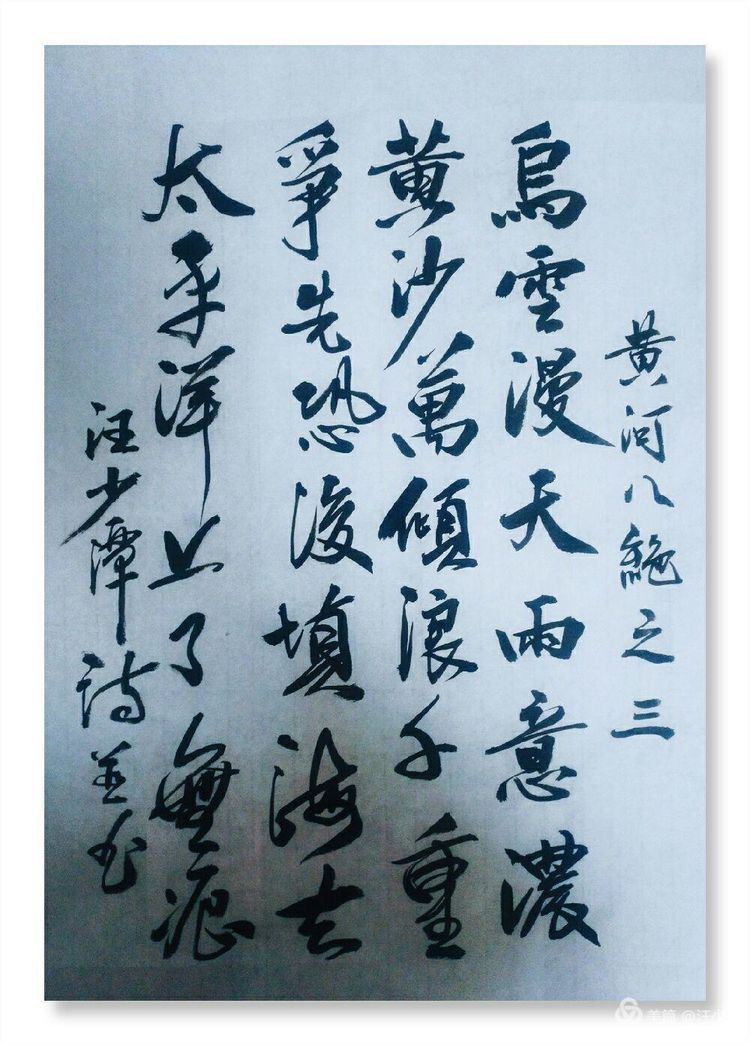 黄河八絶之三
烏雲漫天雨意濃
黄沙萬傾浪千重
爭先恐後填海去
太平洋上了無痕
汪少潭詩並書
美篇 @汪少